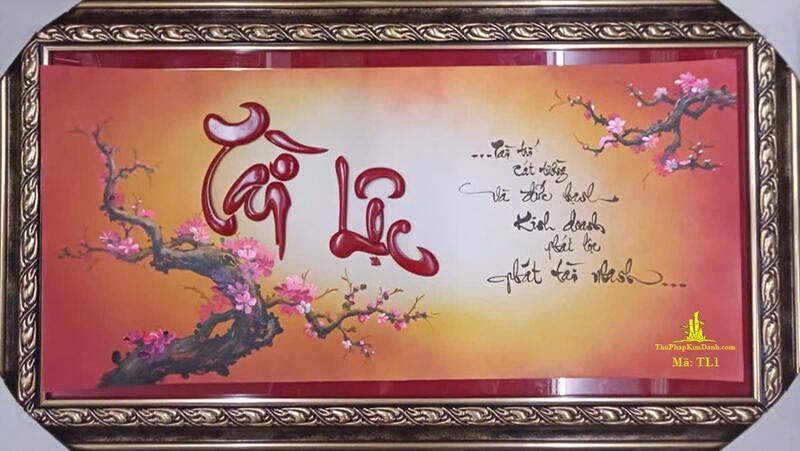 Tài Lộc
...Tài trí
cát tường
và đức hạnh
Kinh doanh
phát lộc
phát tài nhanh...
ThuPhapKimDanh.com
Mã: TL1